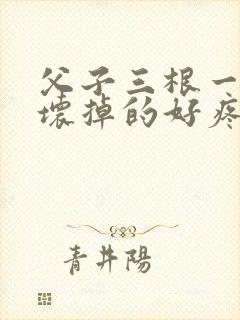 父子三根一
壞掉的好疼
青井陽